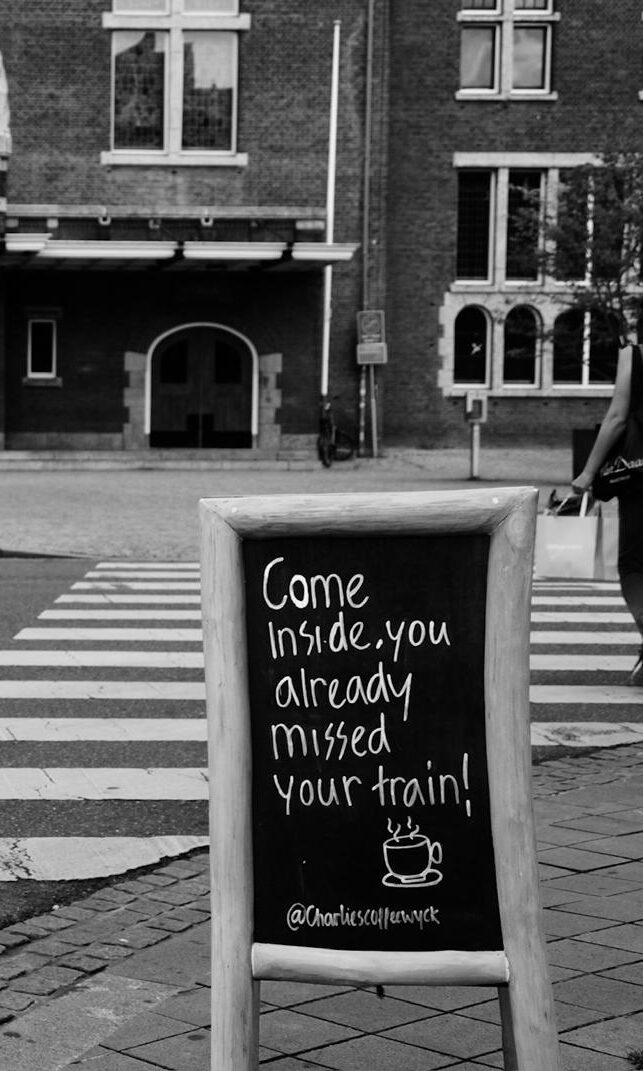 Come
Inside, you
already
missed
your train!
@Charliescoffeewyck